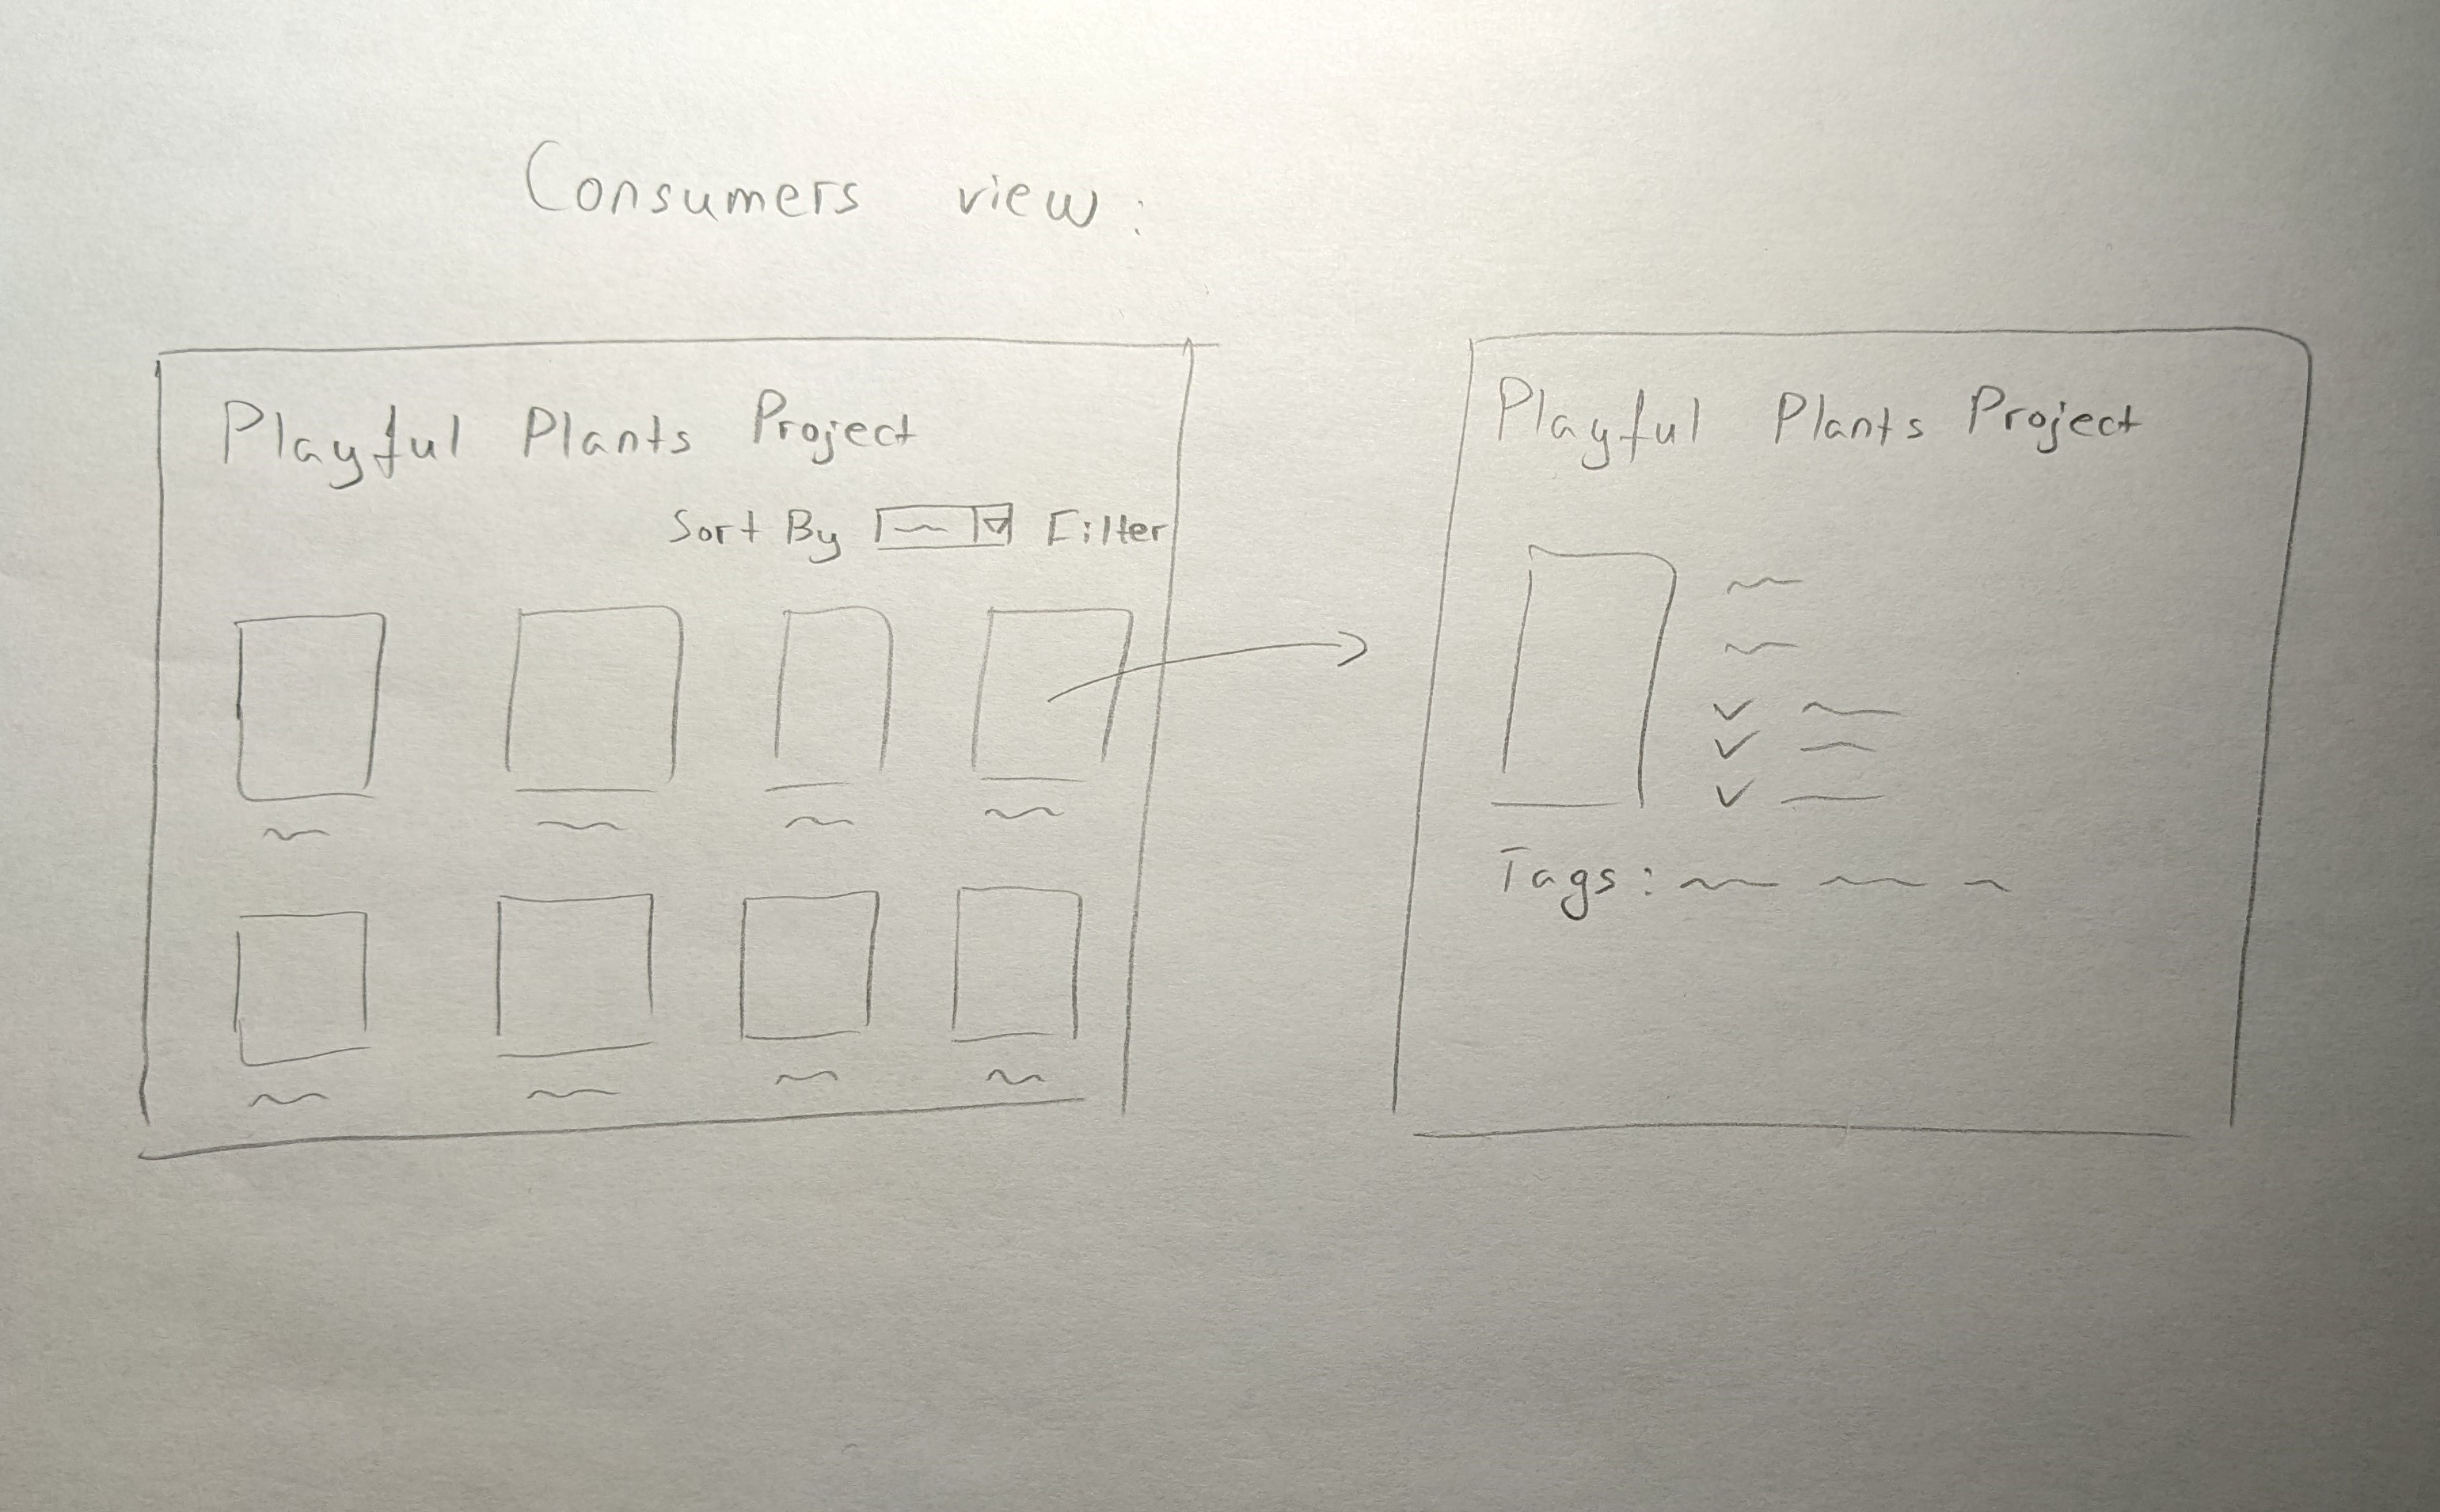 Consumers view:
Playful Plants Project
Sort By Filter
Playful Plants Project
Tags: